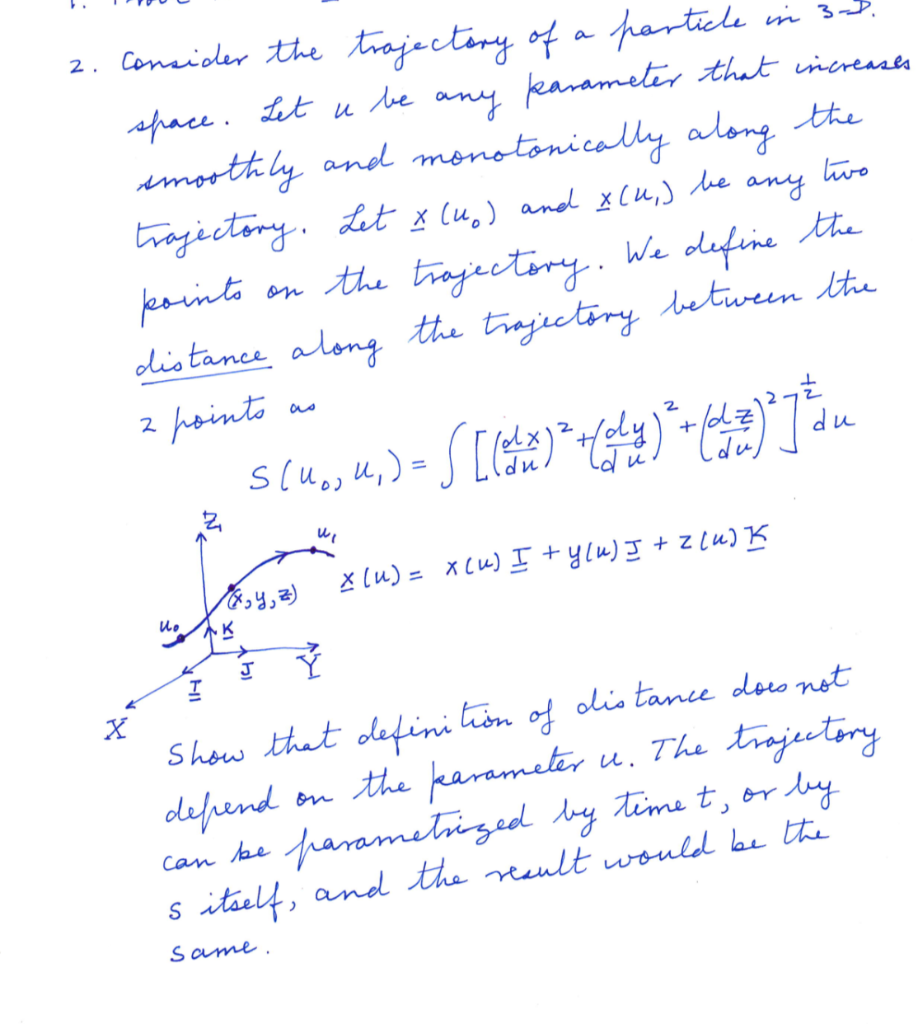 2. Consider the trajectory of a particle in 3-D.
space. Let u be any parameter that increases
smoothly and monotonically along the
trajectory. Let x(u₀) and x(u₁) be any two
points on the trajectory. We define the
distance along the trajectory between the
2 points as
S(u₀, u₁) = ∫ [(dx/du)² + (dy/du)² + (dz/du)²]^½ du
Z
u₁
x(u) = x(u) I + y(u) J + z(u) K
(x, y, z)
u₀
K
I
J
Y
X
Show that definition of distance does not
depend on the parameter u. The trajectory
can be parametrized by time t, or by
s itself, and the result would be the
same.